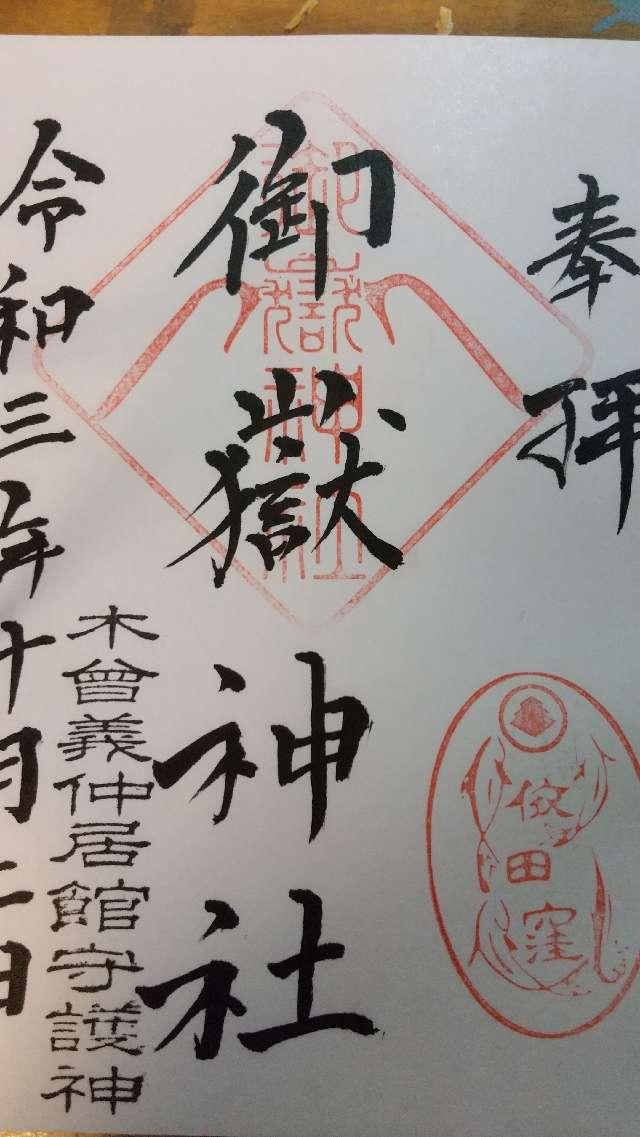 奉拝
御嶽神社
御嶽神社
依田窪
木曾義仲居館守護神
令和三年十月二日